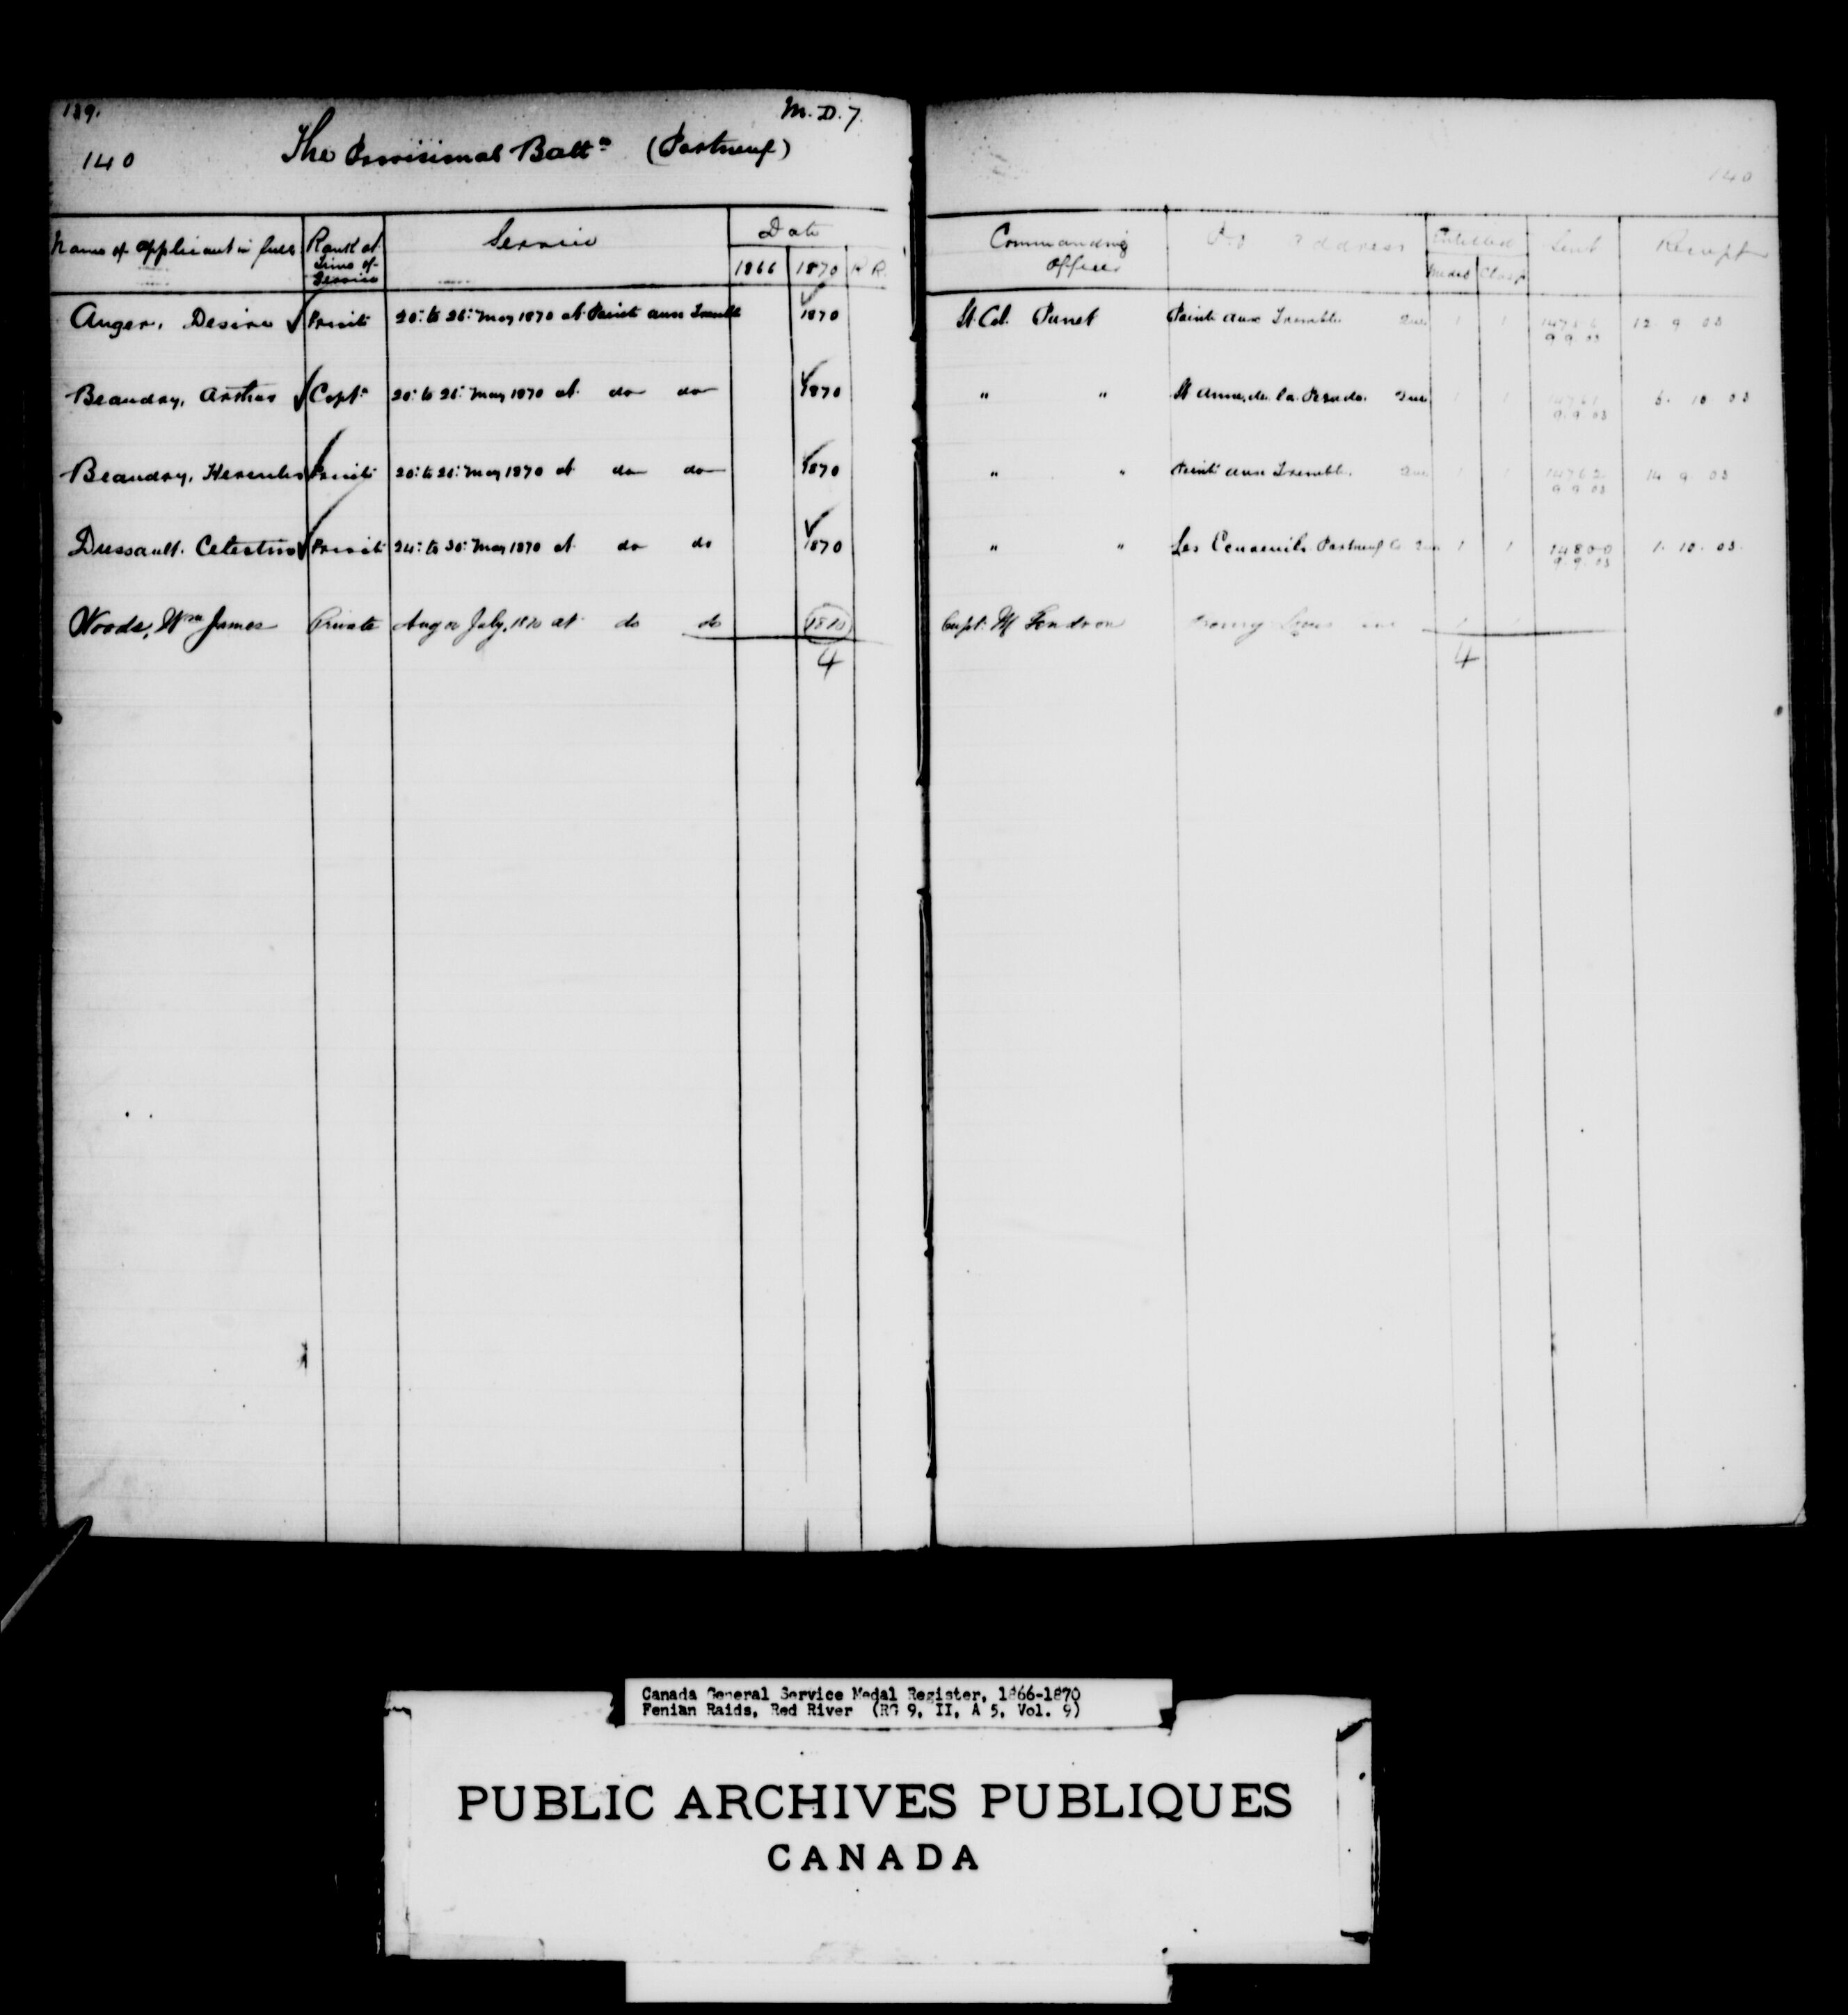 139.
M. D. 7.
140
The Provisional Battn (Portneuf)
140
Name of applicant in full Rank at Time of Service Service Date 1866 1870 R R. Commanding Officer P.O Address Entitled Medal Clasp Sent Receipt
Anger, Desire Private 20th to 26th May 1870 at Point aux Trembles 1870 Lt. Col. Panet Pointe aux Trembles Que 1 1 9.9.03 12 9 03
Beaudry, Arthur Capt. 20th to 26th May 1870 at do do 1870 " " St Anne de la Perade. Que 1 1 14761 9.9.03 5. 10 03
Beaudry, Hercules Private 20th to 26th May 1870 at do do 1870 " " Pointe aux Trembles. Que 1 1 14762 9 9 03 14 9. 03
Dussault. Celestin Private 24th to 30th May 1870 at do do 1870 " " Les Ecureuils Portneuf Co Que 1 1 14800 9.9.03 1. 10. 03.
Woods, Wm James Private Aug or July, 1870 at do do 1870 Capt. M
4 4
Canada General Service Medal Register, 1866-1870
Fenian Raids, Red River (RG 9, II, A 5, Vol. 9)
PUBLIC ARCHIVES PUBLIQUES
CANADA